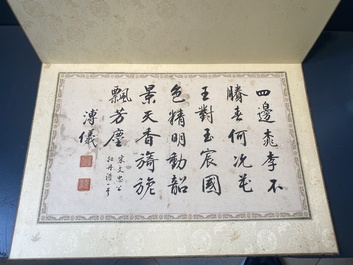 四邊桃李不
勝春何況花
王對玉宸國
色精明動韶
景天香旖旎
飄芳塵
宋文忠公
牡丹詩一首
溥儀